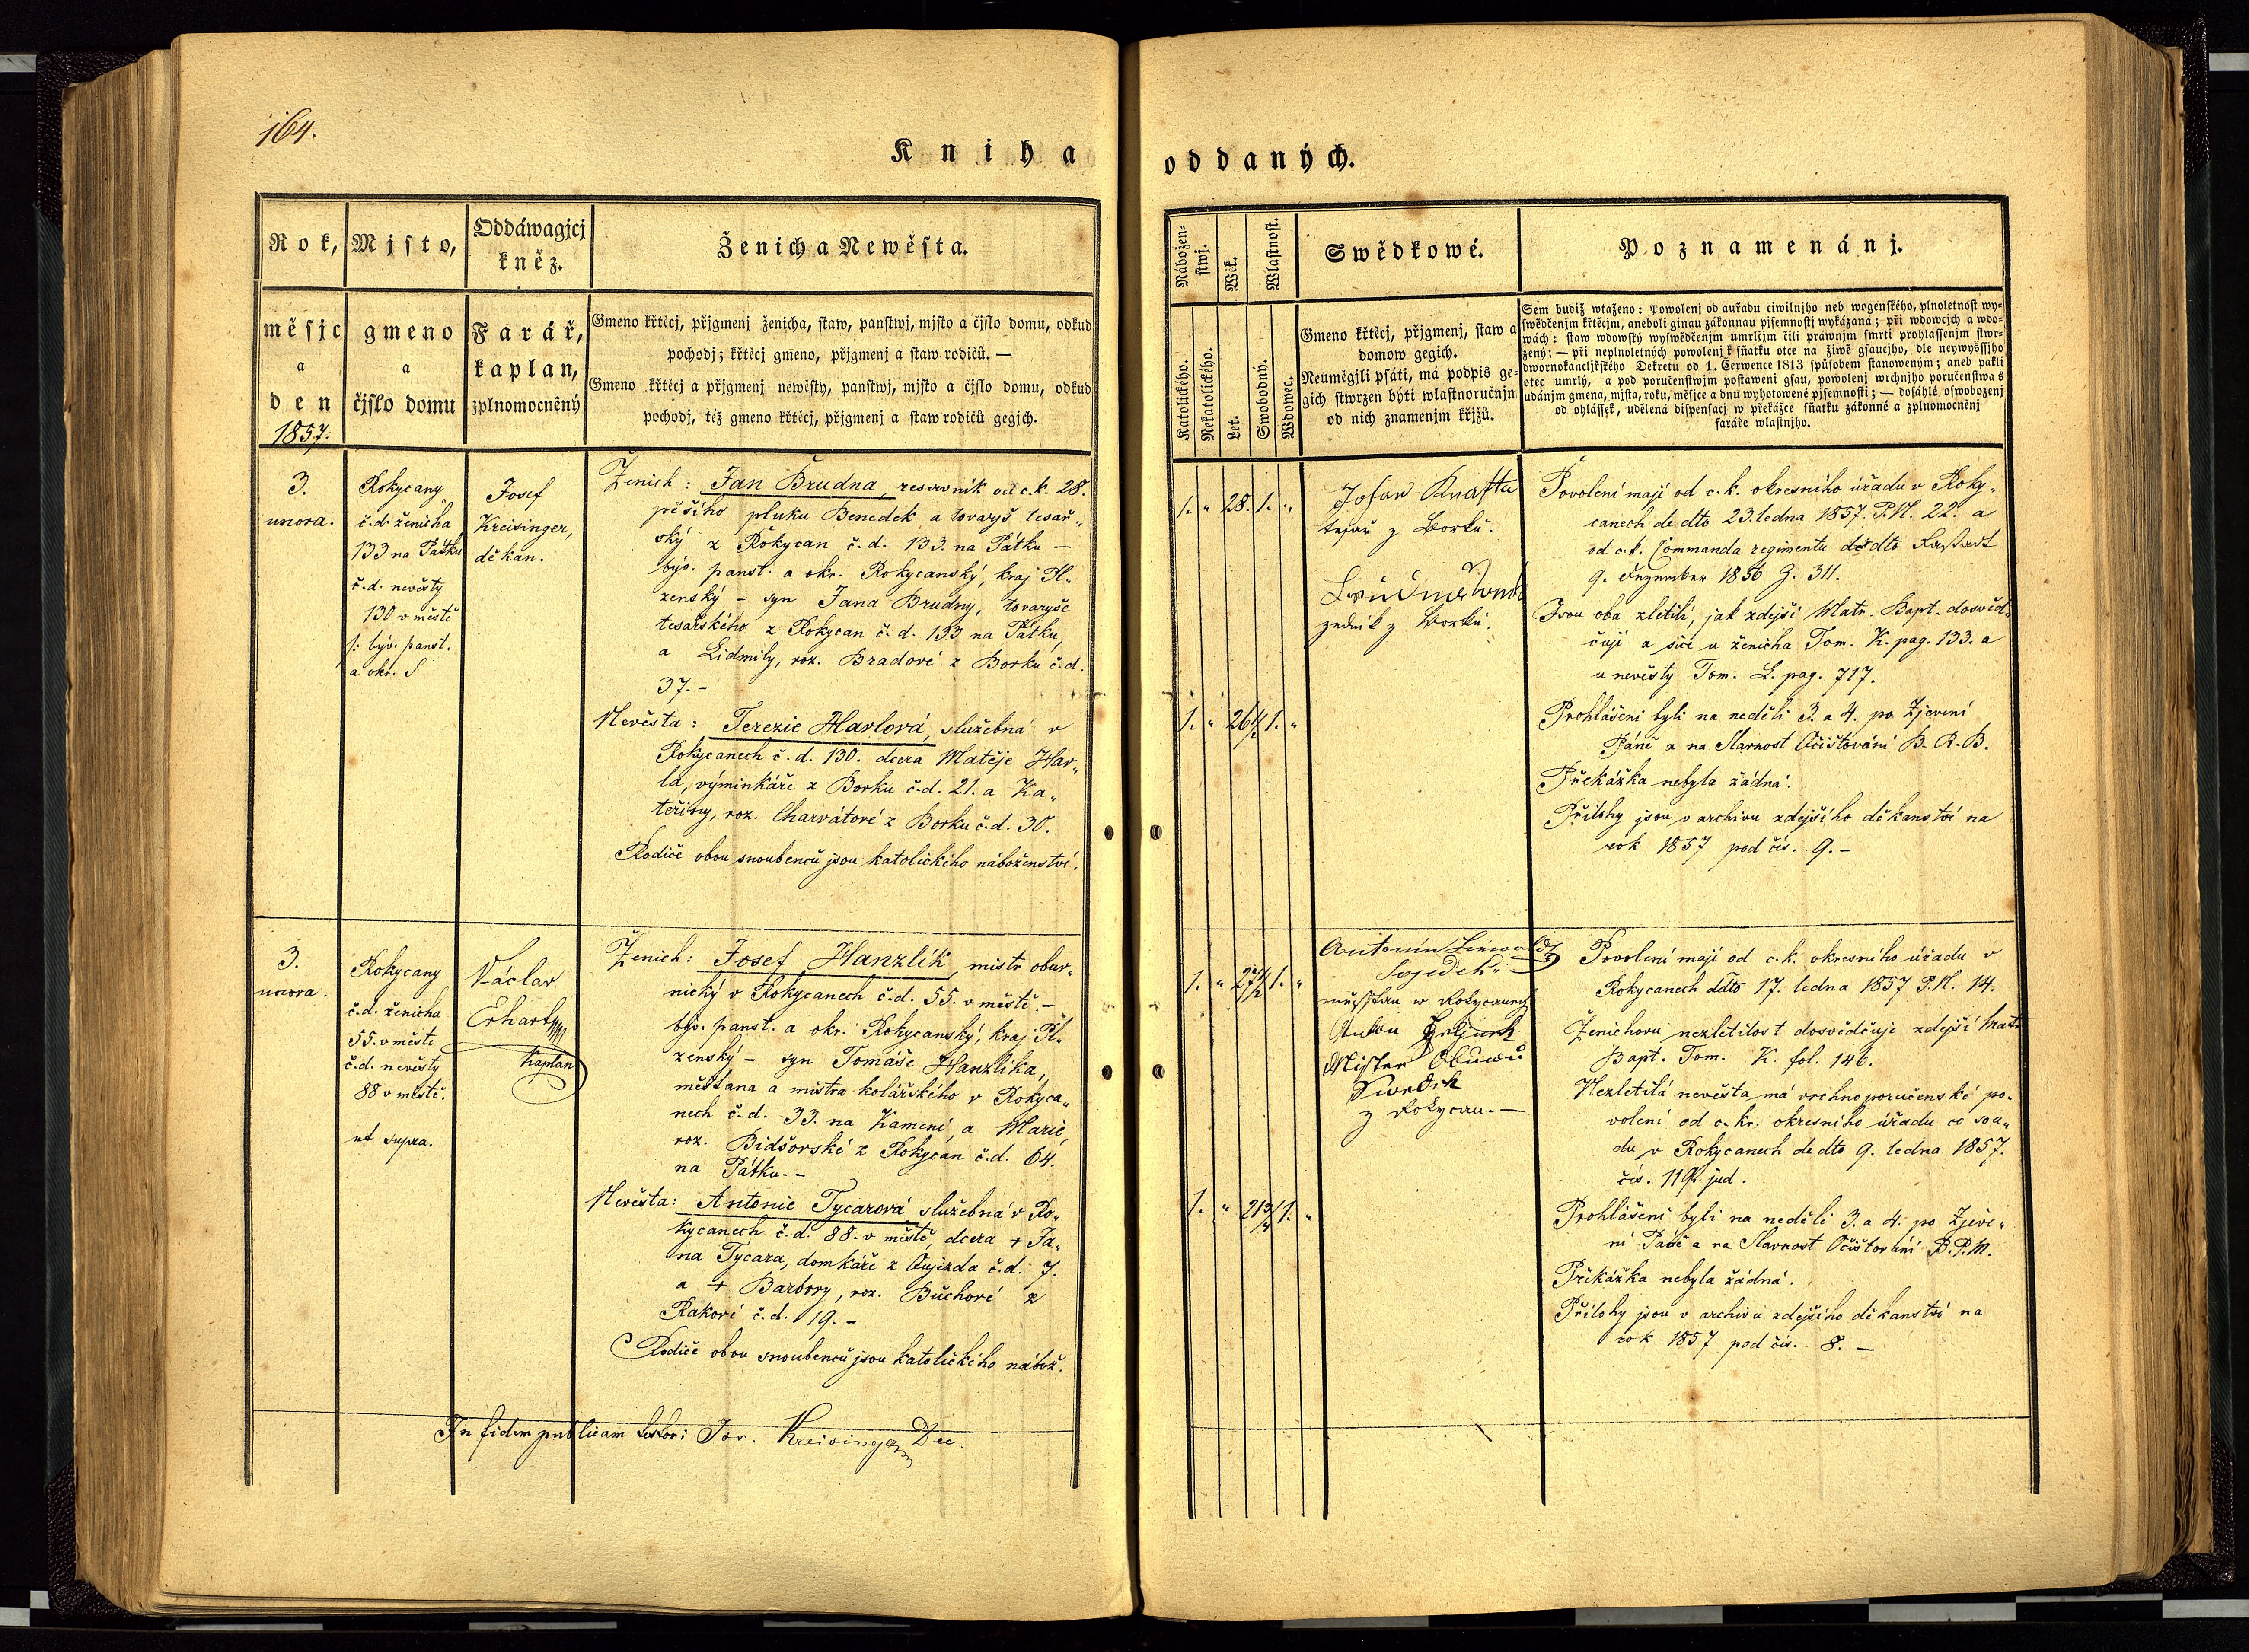 164.
Kniha
oddaných.
Rok,
měsjc
a
den
1857.
Mjsto,
gmeno
a
čjslo domu
Oddáwagjcj
kněz.
Farář,
kaplan,
zplnomocněný
Ženich a Newěsta.
Gmeno křtěcj, přjgmenj ženicha, staw, panstwj, mjsto a čjslo domu, odkud
pochodj; křtěcj gmeno, přjgmenj a staw rodičů. —
Gmeno křtěcj a přjgmenj newěsty, panstwj, mjsto a čjslo domu, odkud
pochodj, též gmeno křtěcj, přjgmenj a staw rodičů gegjch.
Nábožen-
stwj.
Katolického.
Nekatolického.
Wěk.
Let.
Wlastnost.
Swobodný.
Wdowec.
Swědkowé.
Gmeno křtěcj, přjgmenj, staw a
domow gegich.
Neuměgjli psáti, má podpis ge-
gich stwrzen býti wlastnoručnjm
od nich znamenjm křjžů.
Poznamenánj.
Sem budiž wtaženo: Powolenj od auřadu ciwilnjho neb wogenského, plnoletnost wy-
swědčenjm křtěcjm, aneboli ginau zákonnau pjsemnostj wykázaná; při wdowcjch a wdo-
wách: staw wdowský wyswědčenjm umrlčjm čili práwnjm smrti prohlassenjm stwr-
zený; — při neplnoletných powolenj k sňatku otce na žiwě gsaucjho, dle neywyšssjho
dwornokancljřského Dekretu od 1. Čerwence 1813 spůsobem stanoweným; aneb pakli
otec umrlý, a pod poručenstwjm postaweni gsau, powolenj wrchnjho poručenstwa s
udánjm gmena, mjsta, roku, měsjce a dnu wyhotowené pjsemnosti; — dosáhlé oswobozenj
od ohlássek, udělená dispensacj w překážce sňatku zákonné a zplnomocněnj
faráře wlastnjho.
3.
unora.
Rokycany
č.d. ženicha
133 na Pátku
č.d. nevěsty
130 v městě
býv. panst.
a okr.
Josef
Kreisinger,
děkan.
Ženich: Jan Brudna, reservník od c.k. 28.
pěšího pluku Benedek, a tovaryš tesař„
ský z Rokycan č.d. 133. na Pátku —
býv. panst. a okr. Rokycanský, kraj Pl„
zenský – syn Jana Brudny, tovaryše
tesařského z Rokycan č.d. 133 na Pátku,
a Lidmily, roz. Bradové z Borku č.d.
37. –
Nevěsta: Terezie Havlová, služebná v
Rokycanech č.d. 130. dcera Matěje Hav„
la, výminkáře z Borku č.d. 21. a Ka„
teřiny, roz. Charvátové z Borku č.d. 30.
Rodiče obou snoubenců jsou katolického náboženství.
1. „ 28. 1. „
1. „ 26 1/2 1. „
tesař z Borku.
zedník z Borku.
Povolení mají od c.k. okresního úřadu v Roky„
canech de dto 23. ledna 1857. P.N. 22. a
od c.k. Commanda regimentu de dto Rastadt
9. Dezember 1856 Z. 311.
Jsou oba zletilí, jak zdejší Matr. Bapt. dosvěd„
čují a sice u ženicha Tom. K. pag. 133. a
u nevěsty Tom. L. pag. 717.
Prohlášeni byli na neděli 3. a 4. po Zjevení
Páně a na Slavnost Očišťování B. R. B.
Překážka nebyla žádná.
Přílohy jsou v archivu zdejšího děkanství na
rok 1857 pod čís. 9. –
3.
unora.
Rokycany
č.d. ženicha
55. v městě
č.d. nevěsty
88 v městě.
ut supra.
Václav
Erhart
Kaplan
Ženich: Josef Hanzlík, mistr obuv„
nický v Rokycanech č.d. 55. v městě –
býv. panst. a okr. Rokycanský, kraj Pl„
zenský – syn Tomáše Hanzlíka,
měšťana a mistra kolářského v Rokyca„
nech č.d. 33. na Kamení, a Marie,
roz. Bidšovské z Rokycan č.d. 64.
na Pátku. –
Nevěsta: Antonie Tycarová služebná v Ro„
kycanech č.d. 88. v městě, dcera + Ja„
na Tycara, domkáře z Oujezda č.d. 7.
a + Barbory, roz. Buchové z
Rakové č.d. 19. –
Rodiče obou snoubenců jsou katolického nábož.
In fidem publicam testor: Jos. Kreisinger Dec.
1. „ 27 1/2 1. „
1. „ 21 3/4 1. „
Antonín
Swědek
měsstan w Rokycanech
Mister Obuwů
Swědek
z Rokycan. —
Povolení mají od c.k. okresního úřadu v
Rokycanech ddto 17. ledna 1857 P.N. 14.
Ženichovu nezletilost dosvědčuje zdejší Matr.
Bapt. Tom. K. fol. 146.
Nezletilá nevěsta má vrchnoporučenské po„
volení od c. kr. okresního úřadu co sou„
du v Rokycanech de dto 9. ledna 1857.
čís. 119 jud.
Prohlášeni byli na neděli 3. a 4. po Zjeve„
ní Páně a na Slavnost Očišťování B.P.M.
Překážka nebyla žádná.
Přílohy jsou v archivu zdejšího děkanství na
rok 1857 pod čís. 8. –